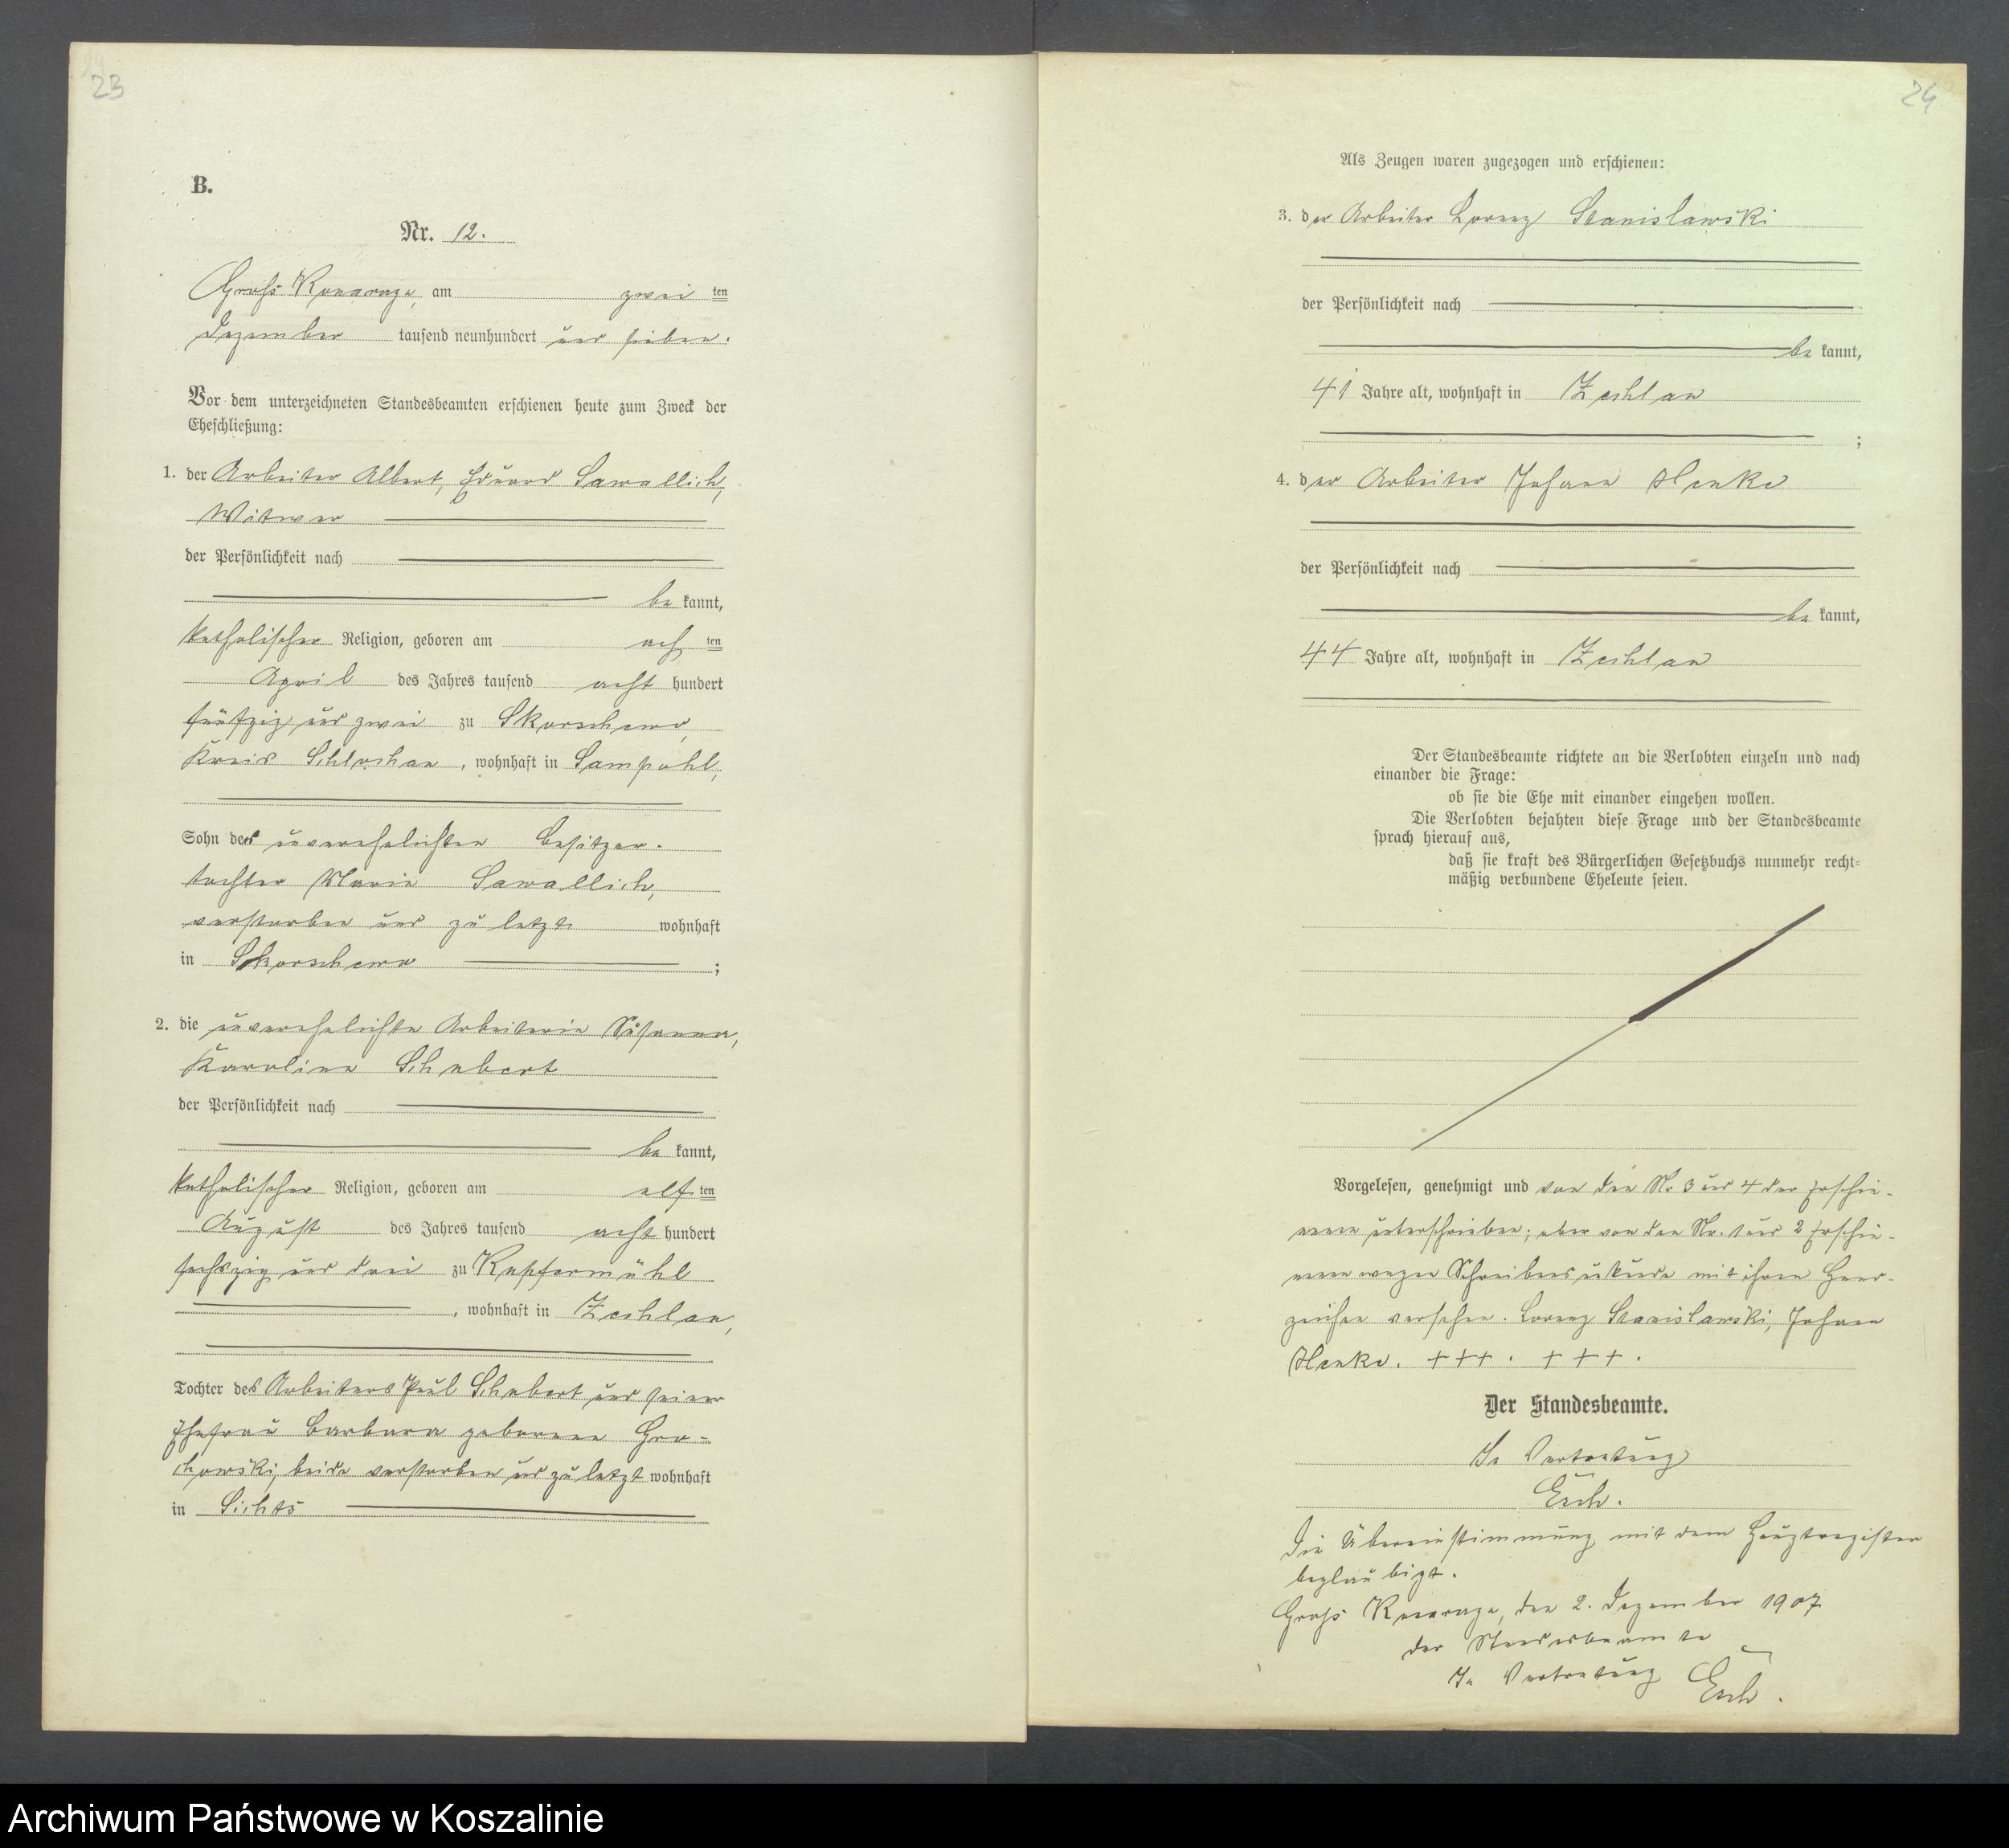 23
B.
Nr. 12.
Groß Konarzyn, am zwei ten
Dezember tausend neunhundert und sieben.
Vor dem unterzeichneten Standesbeamten erschienen heute zum Zweck der
Eheschließung:
1. der Arbeiter Albert, Eduard Sawallich,
Witwer
der Persönlichkeit nach
be kannt,
katholischer Religion, geboren am ach ten
April des Jahres tausend acht hundert
fünfzig und zwei zu Skorschewo,
Kreis Schlochau, wohnhaft in Sampohl,
Sohn der unverehelichten Besitzer-
tochter Marie Sawallich,
verstorben und zu letzt wohnhaft
in Skorschewo ;
2. die unverehelichte Arbeiterin Susanna,
Karoline Schubert
der Persönlichkeit nach
be kannt,
katholischer Religion, geboren am elf ten
August des Jahres tausend acht hundert
sechszig und drei zu Kupfermühl
, wohnhaft in Zechlau,
Tochter des Arbeiters Paul Schubert und seiner
Ehefrau Barbara geborenen Gro-
chowski, beide verstorben und zu letzt wohnhaft
in Lichts
24
Als Zeugen waren zugezogen und erschienen:
3. der Arbeiter Lorenz Stanislawski
der Persönlichkeit nach
be kannt,
41 Jahre alt, wohnhaft in Zechlau
;
4. der Arbeiter Johann
der Persönlichkeit nach
be kannt,
44 Jahre alt, wohnhaft in Zechlau
Der Standesbeamte richtete an die Verlobten einzeln und nach
einander die Frage:
ob sie die Ehe mit einander eingehen wollen.
Die Verlobten bejahten diese Frage und der Standesbeamte
sprach hierauf aus,
daß sie kraft des Bürgerlichen Gesetzbuchs nunmehr recht-
mäßig verbundene Eheleute seien.
Vorgelesen, genehmigt und von den Nr 3 und 4 der Erschie-
nenen unterschrieben; aber von den Nr. 1 und 2 Erschie-
nenen wegen Schreibensunkunde mit ihren Hand-
zeichen versehen. Lorenz Stanislawski, Johann
+++. +++.
Der Standesbeamte.
In Vertretung
Esch.
Die Übereinstimmung mit dem Hauptregister
beglaubigt.
Groß Konarzyn, den 2. Dezember 1907
Der Standesbeamte
In Vertretung Esch.
Archiwum Państwowe w Koszalinie